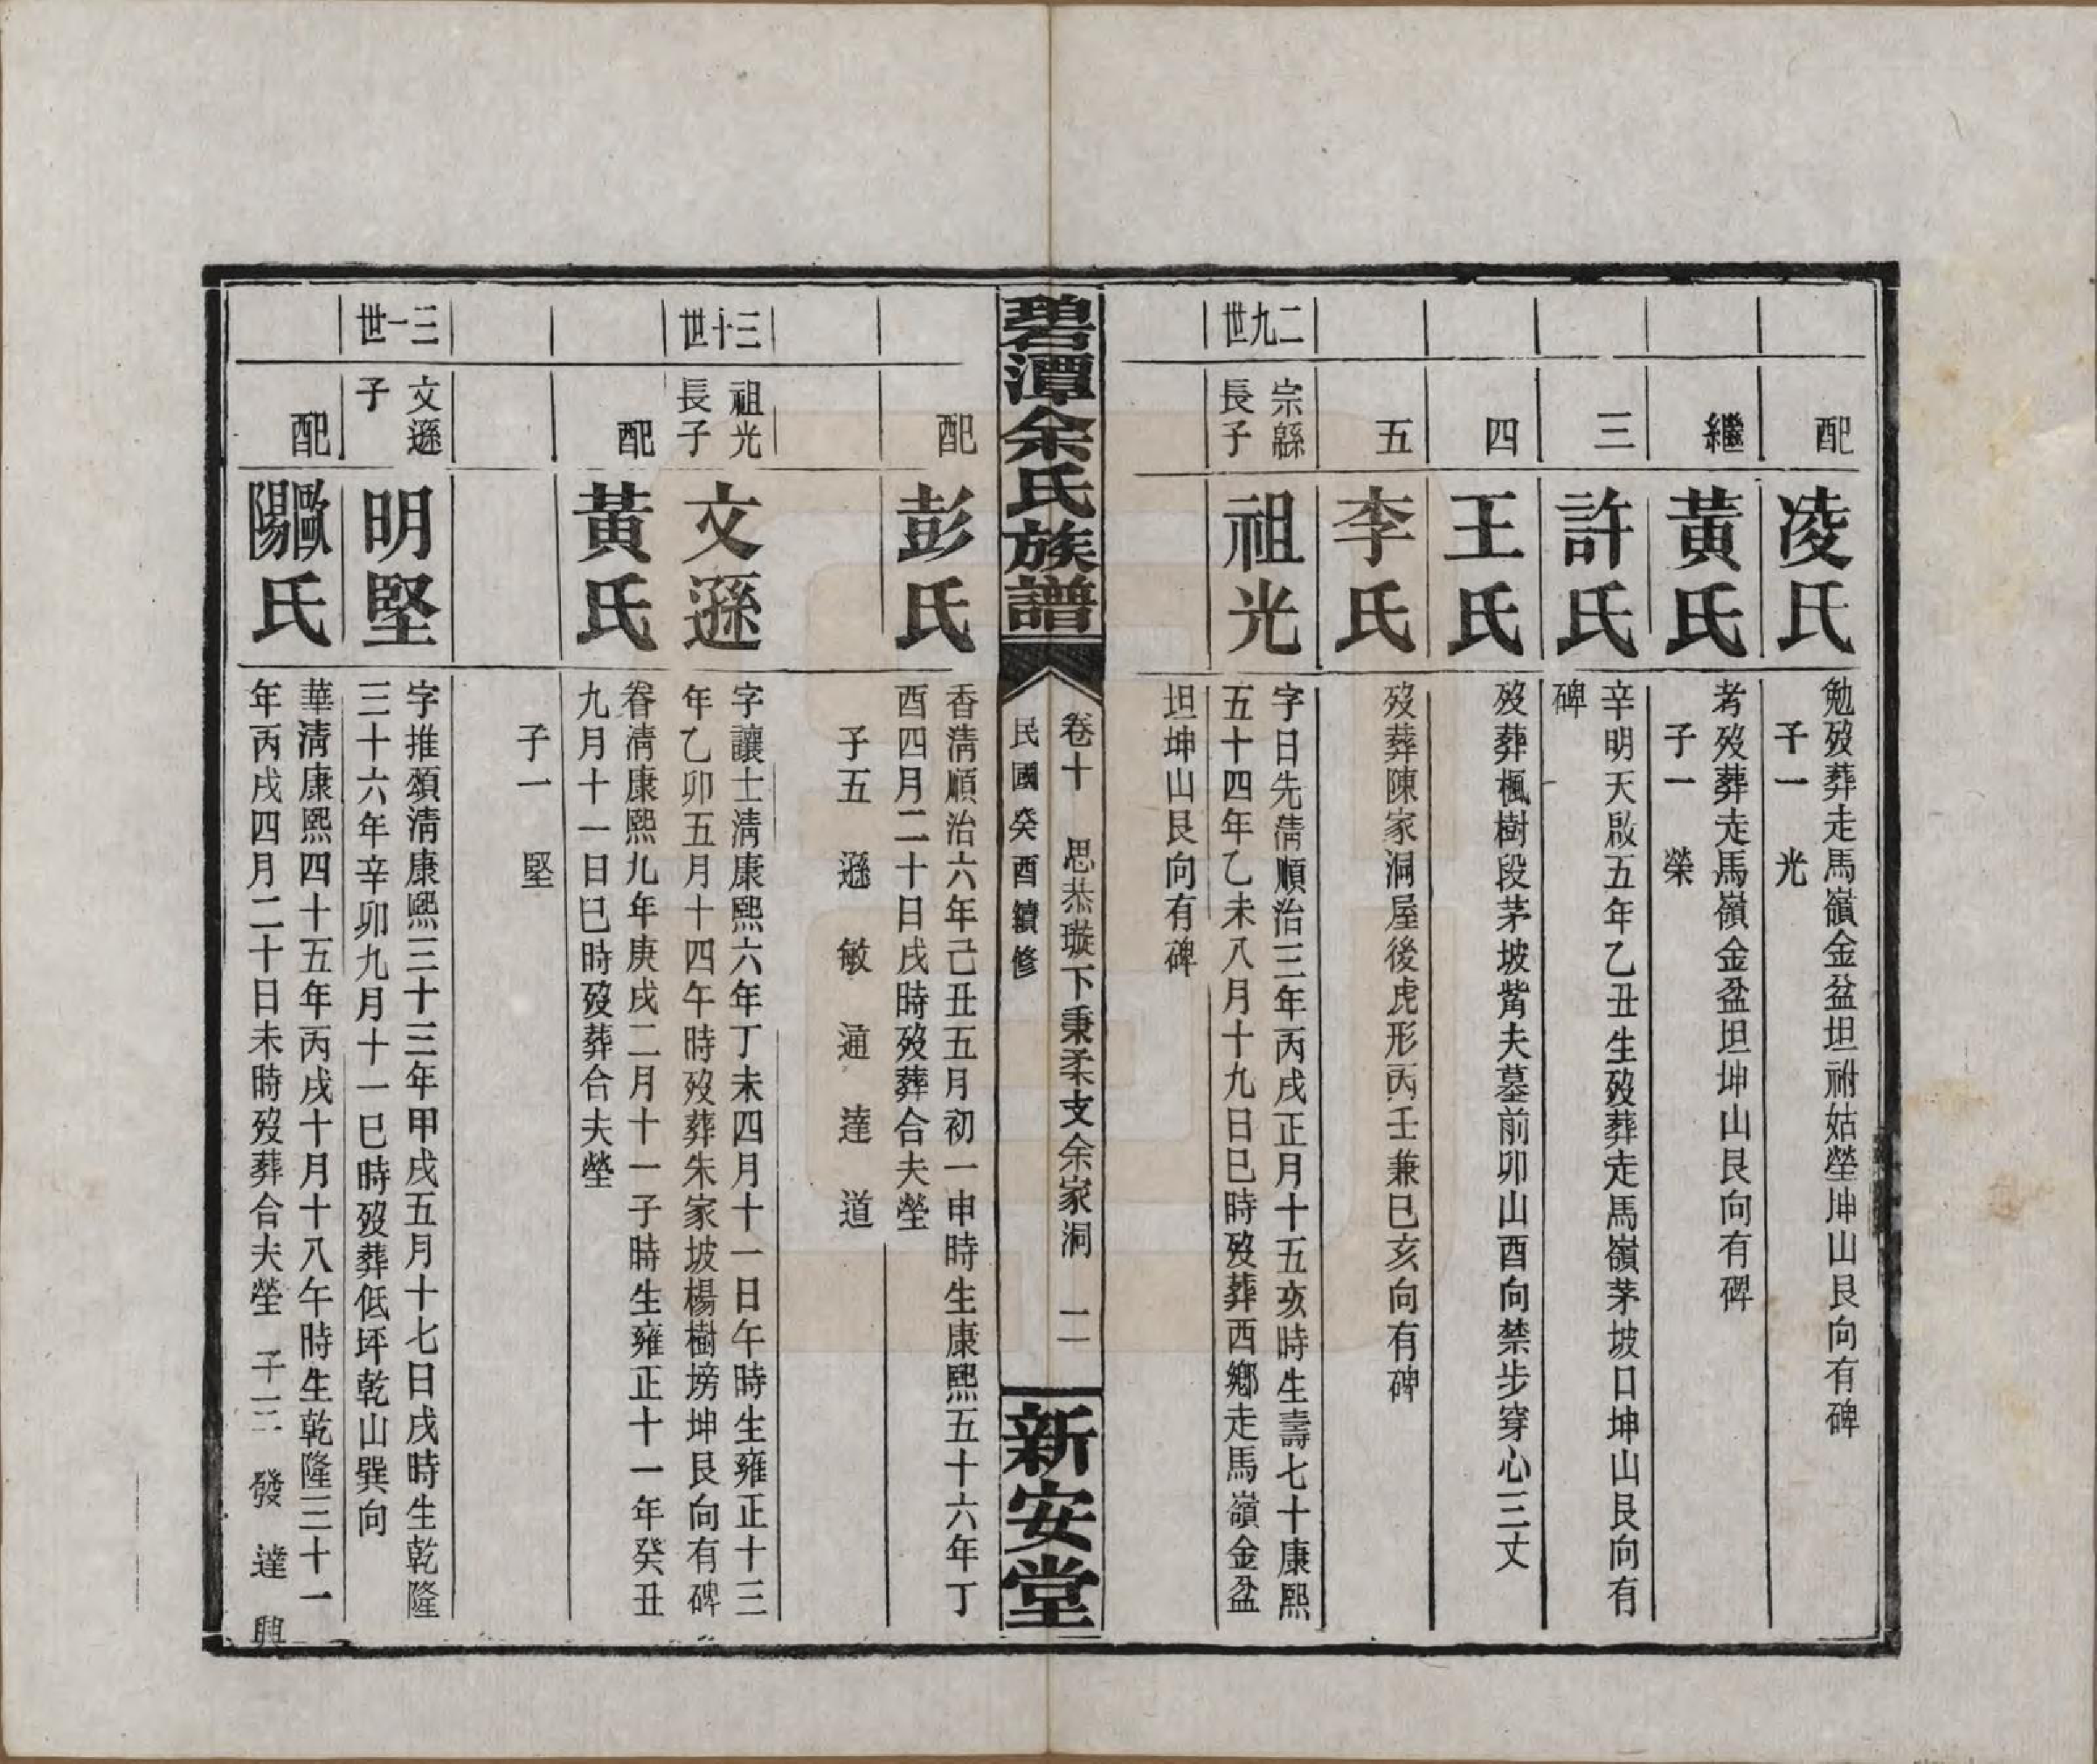 配
凌氏
勉歿葬走馬嶺金盆坦祔姑塋坤山艮向有碑
子一 光
繼
黃氏
考歿葬走馬嶺金盆坦坤山艮向有碑
子一 榮
三
許氏
辛明天啟五年乙丑生歿葬走馬嶺茅坡口坤山艮向有
碑
四
王氏
歿葬楓樹段茅坡觜夫墓前卯山酉向禁步穿心三丈
五
李氏
歿葬陳家洞屋後虎形丙壬兼巳亥向有碑
二九世
宗緜
長子
祖光
字日先清順治三年丙戌正月十五亥時生壽七十康熙
五十四年乙未八月十九日巳時歿葬西鄉走馬嶺金盆
坦坤山艮向有碑
碧潭余氏族譜
卷十 思恭璇下秉柔支余家洞 二
民國癸酉續修
新安堂
配
彭氏
香清順治六年己丑五月初一申時生康熙五十六年丁
酉四月二十日戌時歿葬合夫塋
子五 遜 敏 通 達 道
三十世
祖光
長子
文遜
字讓士清康熙六年丁未四月十一日午時生雍正十三
年乙卯五月十四午時歿葬朱家坡楊樹塝坤艮向有碑
配
黃氏
眷清康熙九年庚戌二月十一子時生雍正十一年癸丑
九月十一日巳時歿葬合夫塋
子一 堅
三一世
文遜
子
明堅
字推頌清康熙三十三年甲戌五月十七日戌時生乾隆
三十六年辛卯九月十一巳時歿葬低坪乾山巽向
配
歐陽氏
華清康熙四十五年丙戌十月十八午時生乾隆三十一
年丙戌四月二十日未時歿葬合夫塋 子三 發 達 興